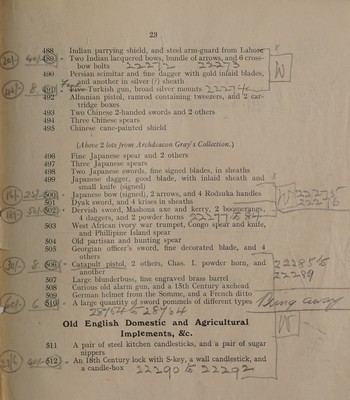 23
488 Indian parrying shield, and steel arm-guard from Lahore
20/- 40/- 489 - Two Indian lacquered bows, bundle of arrows, and 6 cross-
bow bolts 22272 22273
W
490 Persian scimitar and fine dagger with gold inlaid blades,
and another in silver (?) sheath
8 491 Turkish gun, broad silver mounts 22274
492 Albanian pistol, ramrod containing tweezers, and 2 car-
tridge boxes
493 Two Chinese 2-handed swords and 2 others
494 Three Chinese spears
495 Chinese cane-painted shield
(Above 2 lots from Archdeacon Gray's Collection.)
496 Fine Japanese spear and 2 others
497 Three Japanese spears
498 Two Japanese swords, fine signed blades, in sheaths
499 Japanese dagger, good blade, with inlaid sheath and
small knife (signed)
500 - Japanese bow (signed), 2 arrows, and 4 Rodsuka handles
W 22275
22276
501 Dyak sword, and 4 krises in sheaths
502 - Dervish sword, Mashona axe and kerry, 2 boomerangs,
4 daggers, and 2 powder horns 22277 to 84
503 West African ivory war trumpet, Congo spear and knife,
and Philipine Island spear
504 Old partisan and hunting spear
505 Georgian officer's sword, fine decorated blade, and 4
others
30/- 8 506 - Catapult pistol, 2 others, Chas. I. powder horn, and
another
22285 to
22289
507 Large blunderbuss, fine engraved brass barrel
508 Curious old alarm gun, and a 18th Century axehead
509 German helmet from the Somme, and a French ditto
6 510 - A large quantity of sword pommels of different types
28454 to 28464
Being away
Old English Domestic and Agricultural
Implements, &c.
W
511 A pair of steel kitchen candlesticks, and a pair of sugar
nippers
512 - An 18th Century lock with S-key, a wall candlestick, and
a candle-box 22290 to 22292